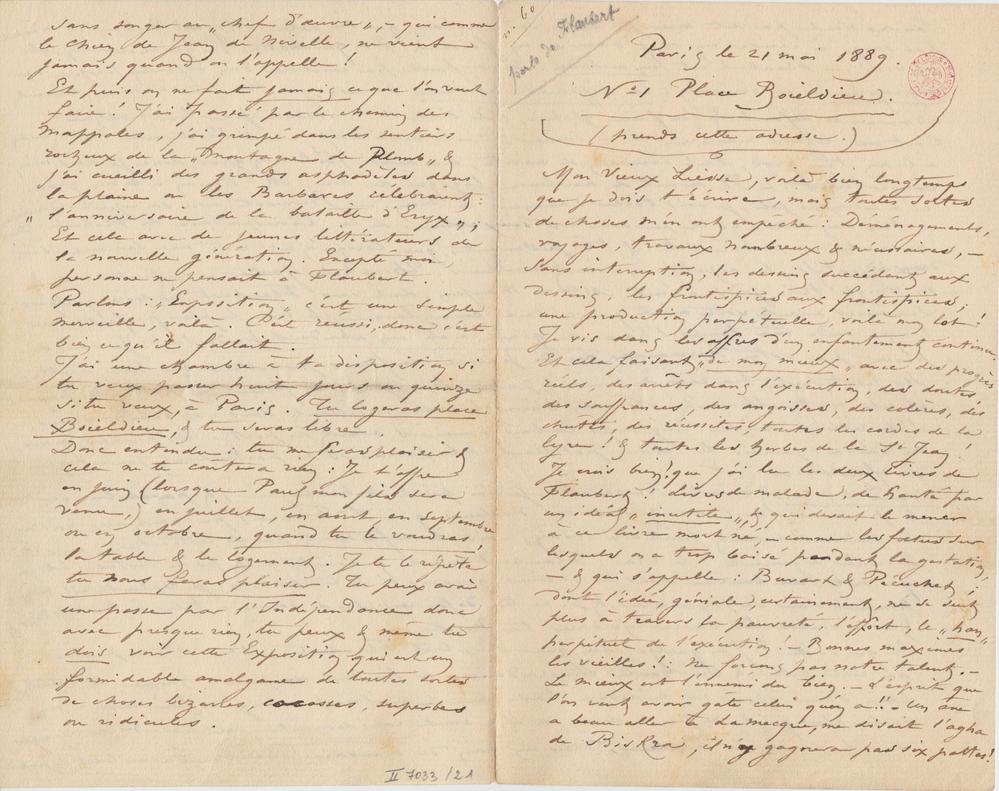 n. 60
parle de Flaubert
Paris le 21 mai 1889.
No 1 Place Boieldieu.
(prends cette adresse.)
Mon Vieux Liesse, voilà bien longtemps
que je dois t'écrire, mais toutes sortes
de choses m'en ont empêché : Déménagements,
voyages, travaux nombreux & nécessaires, —
sans interruption, les dessins succédant aux
dessins, les frontispices aux frontispices,
une production perpétuelle, voilà mon lot !
Je vis dans les affres d'un enfantement continu
Et cela faisant „de mon mieux„ avec des progrès
réels, des arrêts dans l'exécution, des doutes,
des souffrances, des angoisses, des colères, des
chutes, des réussites, toutes les cordes de la
lyre ! & toutes les herbes de la St Jean !
Je crois bien ! que j'ai lu les deux livres de
Flaubert ! livres de malade, de hanté par
un idéal „inutile„, & qui devait le mener
à ce livre mort né, — comme les foetus sur
lesquels on a trop baisé pendant la gestation,
— & qui s'appelle : Buvart & Pécuchet,
dont l'idée, géniale, certainement, ne se sent
plus à travers la pauvreté, l'effort, le „han„
perpétuel de l'exécution ! — Bonnes maximes
les vieilles ! : Ne forçons pas notre talent. —
Le mieux est l'ennemi du bien. — L'esprit que
l'on veut avoir gâte celui qu'on a ! — Un âne
a beau aller à La mecque, me disait l'agha
de Biskra, il n'y gagnera pas six pattes !
sans songer au „chef d'œuvre„, — qui comme
le chien de Jean de Nivelle, ne vient
jamais quand on l'appelle !
Et puis on ne fait jamais ce que l'on veut
faire ! J'ai passé par le chemin des
Mappales, j'ai grimpé dans les sentiers
rocheux de la „Montagne de Plomb„ &
j'ai cueilli des grands asphodèles dans
la plaine où les Barbares célébraient :
„l'anniversaire de la bataille d'Eryx„ ;
Et cela avec de jeunes littérateurs de
la nouvelle génération. Excepté moi
personne ne pensait à Flaubert.
Parlons : „Exposition„ c'est une simple
merveille, voilà. C'est réussi, donc c'est
bien ce qu'il fallait.
J'ai une chambre à ta disposition si
tu veux passer huit jours ou quinze
si tu veux, à Paris. Tu logeras place
Boieldieu, & tu seras libre.
Donc entendu : tu me feras plaisir &
cela ne te coûtera rien : Je t'offre
en juin (lorsque Paul mon fils sera
venu,) en juillet, en août en septembre
ou en octobre, quand tu le voudras,
la table & le logement. Je te le répète
tu nous feras plaisir. Tu peux avoir
une passe par l'Indépendance donc
avec presque rien, tu peux & même tu
dois voir cette Exposition qui est un
formidable amalgame de toutes sortes
de choses bizarres, cocasses, superbes
ou ridicules.
II 7033 / 21